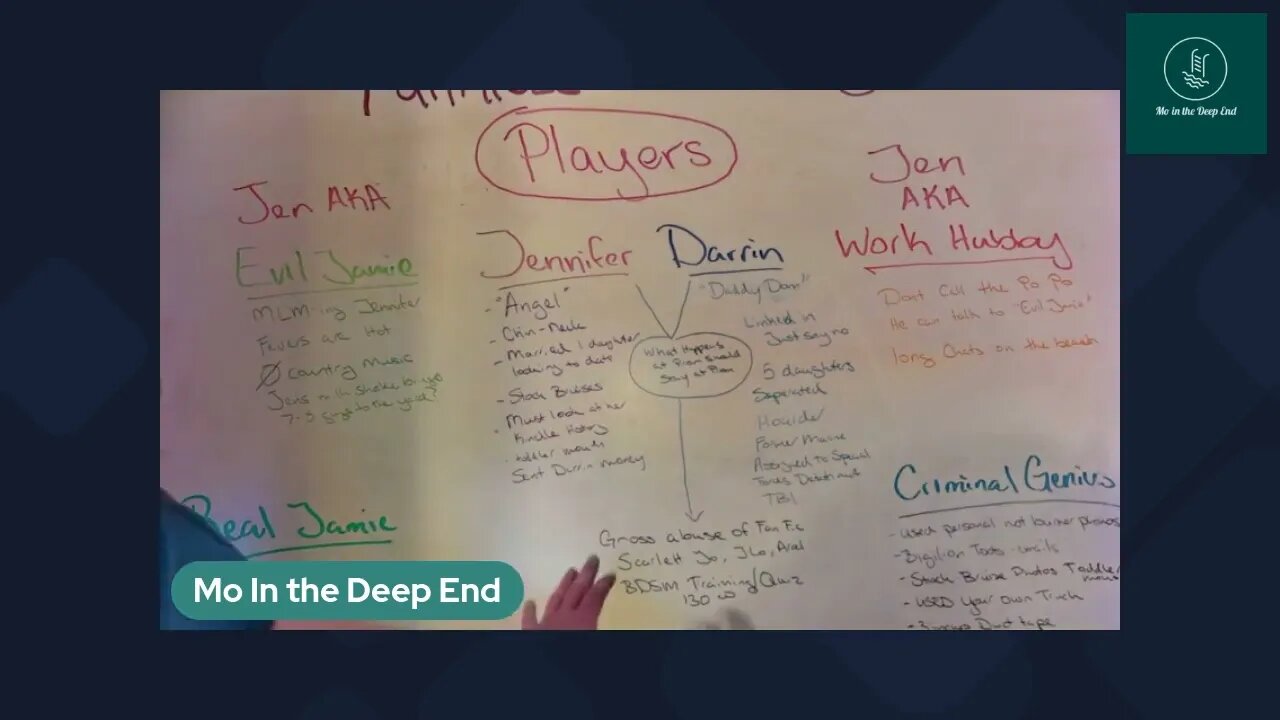 Mo in the Deep End
Players
Jen AKA
Evil Jamie
MLM-ing Jennifer
Fevers are Hot
country music
Jennifer
- "Angel"
- Chin-Neck
- Married 1 daughter
looking to date
- Stock Bruises
- Must look at her
Kindle History
- toddler mouth
Sent Darrin money
Darrin
"Daddy Dom"
Linked in
Just say no
5 daughters
Separated
Former Marine
Assigned to Special
Forces
TBI
What Happens
at Prom should
Stay at Prom
Gross abuse of Fan Fic
Scarlett Jo, JLo, Arial
BDSM Training/Quiz
130
Jen
AKA
Work Hubby
Dont Call the Po Po
He can talk to "Evil Jamie"
long Chats on the beach
Criminal Genius
- used personal not burner phones
- Stock Bruise Photos Toddler
mouth
- USED Your own Truck
Duct tape
Real Jamie
Mo In the Deep End